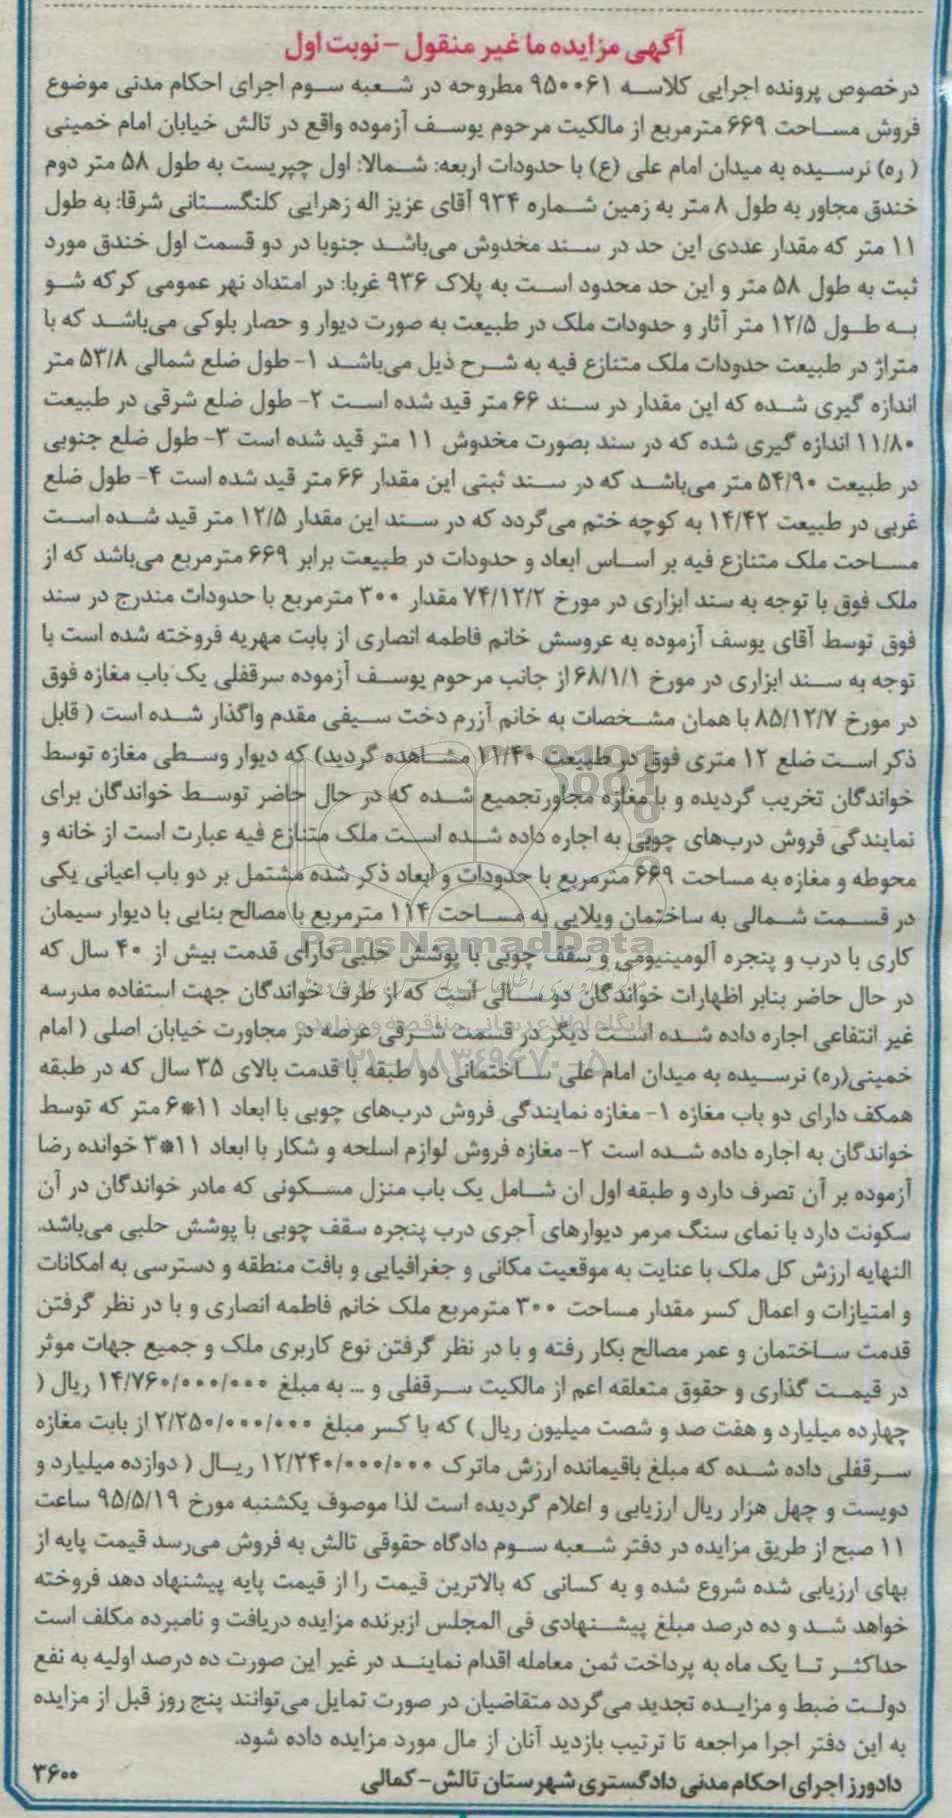 آگهی مزایده ما غیر منقول - نوبت اول
درخصوص پرونده اجرایی کلاسه ۹۵۰۰۶۱ مطروحه در شعبه سوم اجرای احکام مدنی موضوع
فروش مساحت ۶۶۹ مترمربع از مالکیت مرحوم یوسف آزموده واقع در تالش خیابان امام خمینی
( ره) نرسیده به میدان امام علی (ع) با حدودات اربعه: شمالا: اول چپریست به طول ۵۸ متر دوم
خندق مجاور به طول ۸ متر به زمین شماره ۹۳۴ آقای عزیز اله زهرایی کلنگستانی شرقا: به طول
۱۱ متر که مقدار عددی این حد در سند مخدوش می‌باشد جنوبا در دو قسمت اول خندق مورد
ثبت به طول ۵۸ متر و این حد محدود است به پلاک ۹۳۶ غربا: در امتداد نهر عمومی کرکه شو
به طول ۱۲/۵ متر آثار و حدودات ملک در طبیعت به صورت دیوار و حصار بلوکی می‌باشد که با
متراژ در طبیعت حدودات ملک متنازع فیه به شرح ذیل می‌باشد ۱- طول ضلع شمالی ۵۳/۸ متر
اندازه گیری شده که این مقدار در سند ۶۶ متر قید شده است ۲- طول ضلع شرقی در طبیعت
۱۱/۸۰ اندازه گیری شده که در سند بصورت مخدوش ۱۱ متر قید شده است ۳- طول ضلع جنوبی
در طبیعت ۵۴/۹۰ متر می‌باشد که در سند ثبتی این مقدار ۶۶ متر قید شده است ۴- طول ضلع
غربی در طبیعت ۱۴/۴۲ به کوچه ختم می‌گردد که در سند این مقدار ۱۲/۵ متر قید شده است
مساحت ملک متنازع فیه بر اساس ابعاد و حدودات در طبیعت برابر ۶۶۹ مترمربع می‌باشد که از
ملک فوق با توجه به سند ابزاری در مورخ ۷۴/۱۲/۲ مقدار ۳۰۰ مترمربع با حدودات مندرج در سند
فوق توسط آقای یوسف آزموده به عروسش خانم فاطمه انصاری از بابت مهریه فروخته شده است با
توجه به سند ابزاری در مورخ ۶۸/۱/۱ از جانب مرحوم یوسف آزموده سرقفلی یک باب مغازه فوق
در مورخ ۸۵/۱۲/۷ با همان مشخصات به خانم آزرم دخت سیفی مقدم واگذار شده است ( قابل
ذکر است ضلع ۱۲ متری فوق در طبیعت ۱۱/۴۰ مشاهده گردید) که دیوار وسطی مغازه توسط
خواندگان تخریب گردیده و با مغازه مجاورتجمیع شده که در حال حاضر توسط خواندگان برای
نمایندگی فروش درب‌های چوبی به اجاره داده شده است ملک متنازع فیه عبارت است از خانه و
محوطه و مغازه به مساحت ۶۶۹ مترمربع با حدودات و ابعاد ذکر شده مشتمل بر دو باب اعیانی یکی
در قسمت شمالی به ساختمان ویلایی به مساحت ۱۱۴ مترمربع با مصالح بنایی با دیوار سیمان
کاری با درب و پنجره آلومینیومی و سقف چوبی با پوشش حلبی دارای قدمت بیش از ۴۰ سال که
در حال حاضر بنابر اظهارات خواندگان دو سالی است که از طرف خواندگان جهت استفاده مدرسه
غیر انتفاعی اجاره داده شده است دیگر در قسمت شرقی عرصه در مجاورت خیابان اصلی ( امام
خمینی(ره) نرسیده به میدان امام علی ساختمانی دو طبقه با قدمت بالای ۳۵ سال که در طبقه
همکف دارای دو باب مغازه ۱- مغازه نمایندگی فروش درب‌های چوبی با ابعاد ۱۱*۶ متر که توسط
خواندگان به اجاره داده شده است ۲- مغازه فروش لوازم اسلحه و شکار با ابعاد ۱۱*۳ خوانده رضا
آزموده بر آن تصرف دارد و طبقه اول ان شامل یک باب منزل مسکونی که مادر خواندگان در آن
سکونت دارد با نمای سنگ مرمر دیوارهای آجری درب پنجره سقف چوبی با پوشش حلبی می‌باشد.
النهایه ارزش کل ملک با عنایت به موقعیت مکانی و جغرافیایی و بافت منطقه و دسترسی به امکانات
و امتیازات و اعمال کسر مقدار مساحت ۳۰۰ مترمربع ملک خانم فاطمه انصاری و با در نظر گرفتن
قدمت ساختمان و عمر مصالح بکار رفته و با در نظر گرفتن نوع کاربری ملک و جمیع جهات موثر
در قیمت گذاری و حقوق متعلقه اعم از مالکیت سرقفلی و ... به مبلغ ۱۴/۷۶۰/۰۰۰/۰۰۰ ریال (
چهارده میلیارد و هفت صد و شصت میلیون ریال ) که با کسر مبلغ ۲/۲۵۰/۰۰۰/۰۰۰ از بابت مغازه
سرقفلی داده شده که مبلغ باقیمانده ارزش ماترک ۱۲/۲۴۰/۰۰۰/۰۰۰ ریال ( دوازده میلیارد و
دویست و چهل هزار ریال ارزیابی و اعلام گردیده است لذا موصوف یکشنبه مورخ ۹۵/۵/۱۹ ساعت
۱۱ صبح از طریق مزایده در دفتر شعبه سوم دادگاه حقوقی تالش به فروش می‌رسد قیمت پایه از
بهای ارزیابی شده شروع شده و به کسانی که بالاترین قیمت را از قیمت پایه پیشنهاد دهد فروخته
خواهد شد و ده درصد مبلغ پیشنهادی فی المجلس ازبرنده مزایده دریافت و نامبرده مکلف است
حداکثر تا یک ماه به پرداخت ثمن معامله اقدام نمایند در غیر این صورت ده درصد اولیه به نفع
دولت ضبط و مزایده تجدید می‌گردد متقاضیان در صورت تمایل می‌توانند پنج روز قبل از مزایده
به این دفتر اجرا مراجعه تا ترتیب بازدید آنان از مال مورد مزایده داده شود.
دادورز اجرای احکام مدنی دادگستری شهرستان تالش- کمالی
۳۶۰۰
ParsNamadData